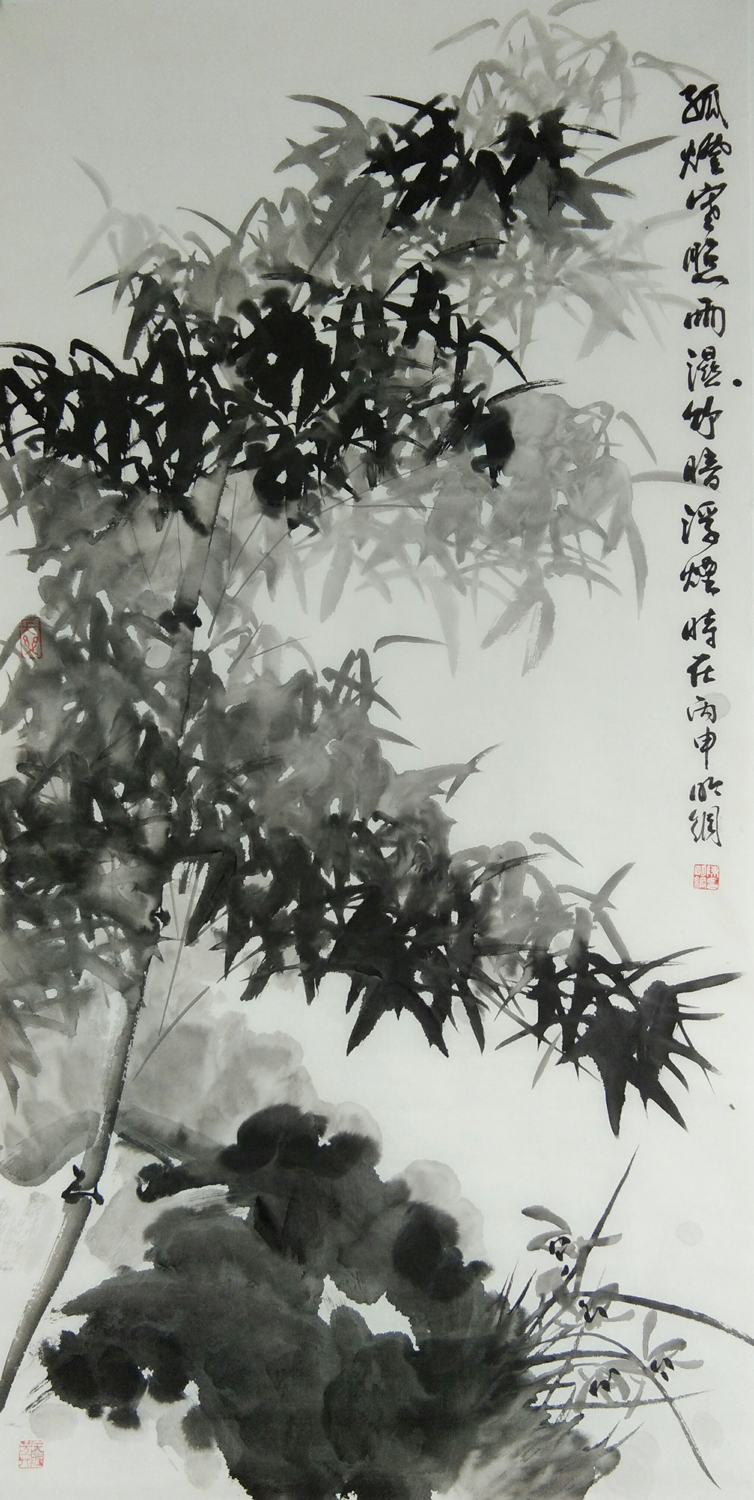 孤燈寒照雨濕竹暗浮煙時在丙申明綱